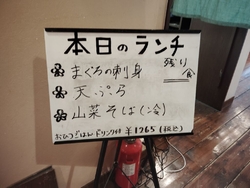 本日のランチ
残り
食
まぐろの刺身
天ぷら
山菜そば(冷)
おひつごはん ドリンク付 ¥1265(税込)